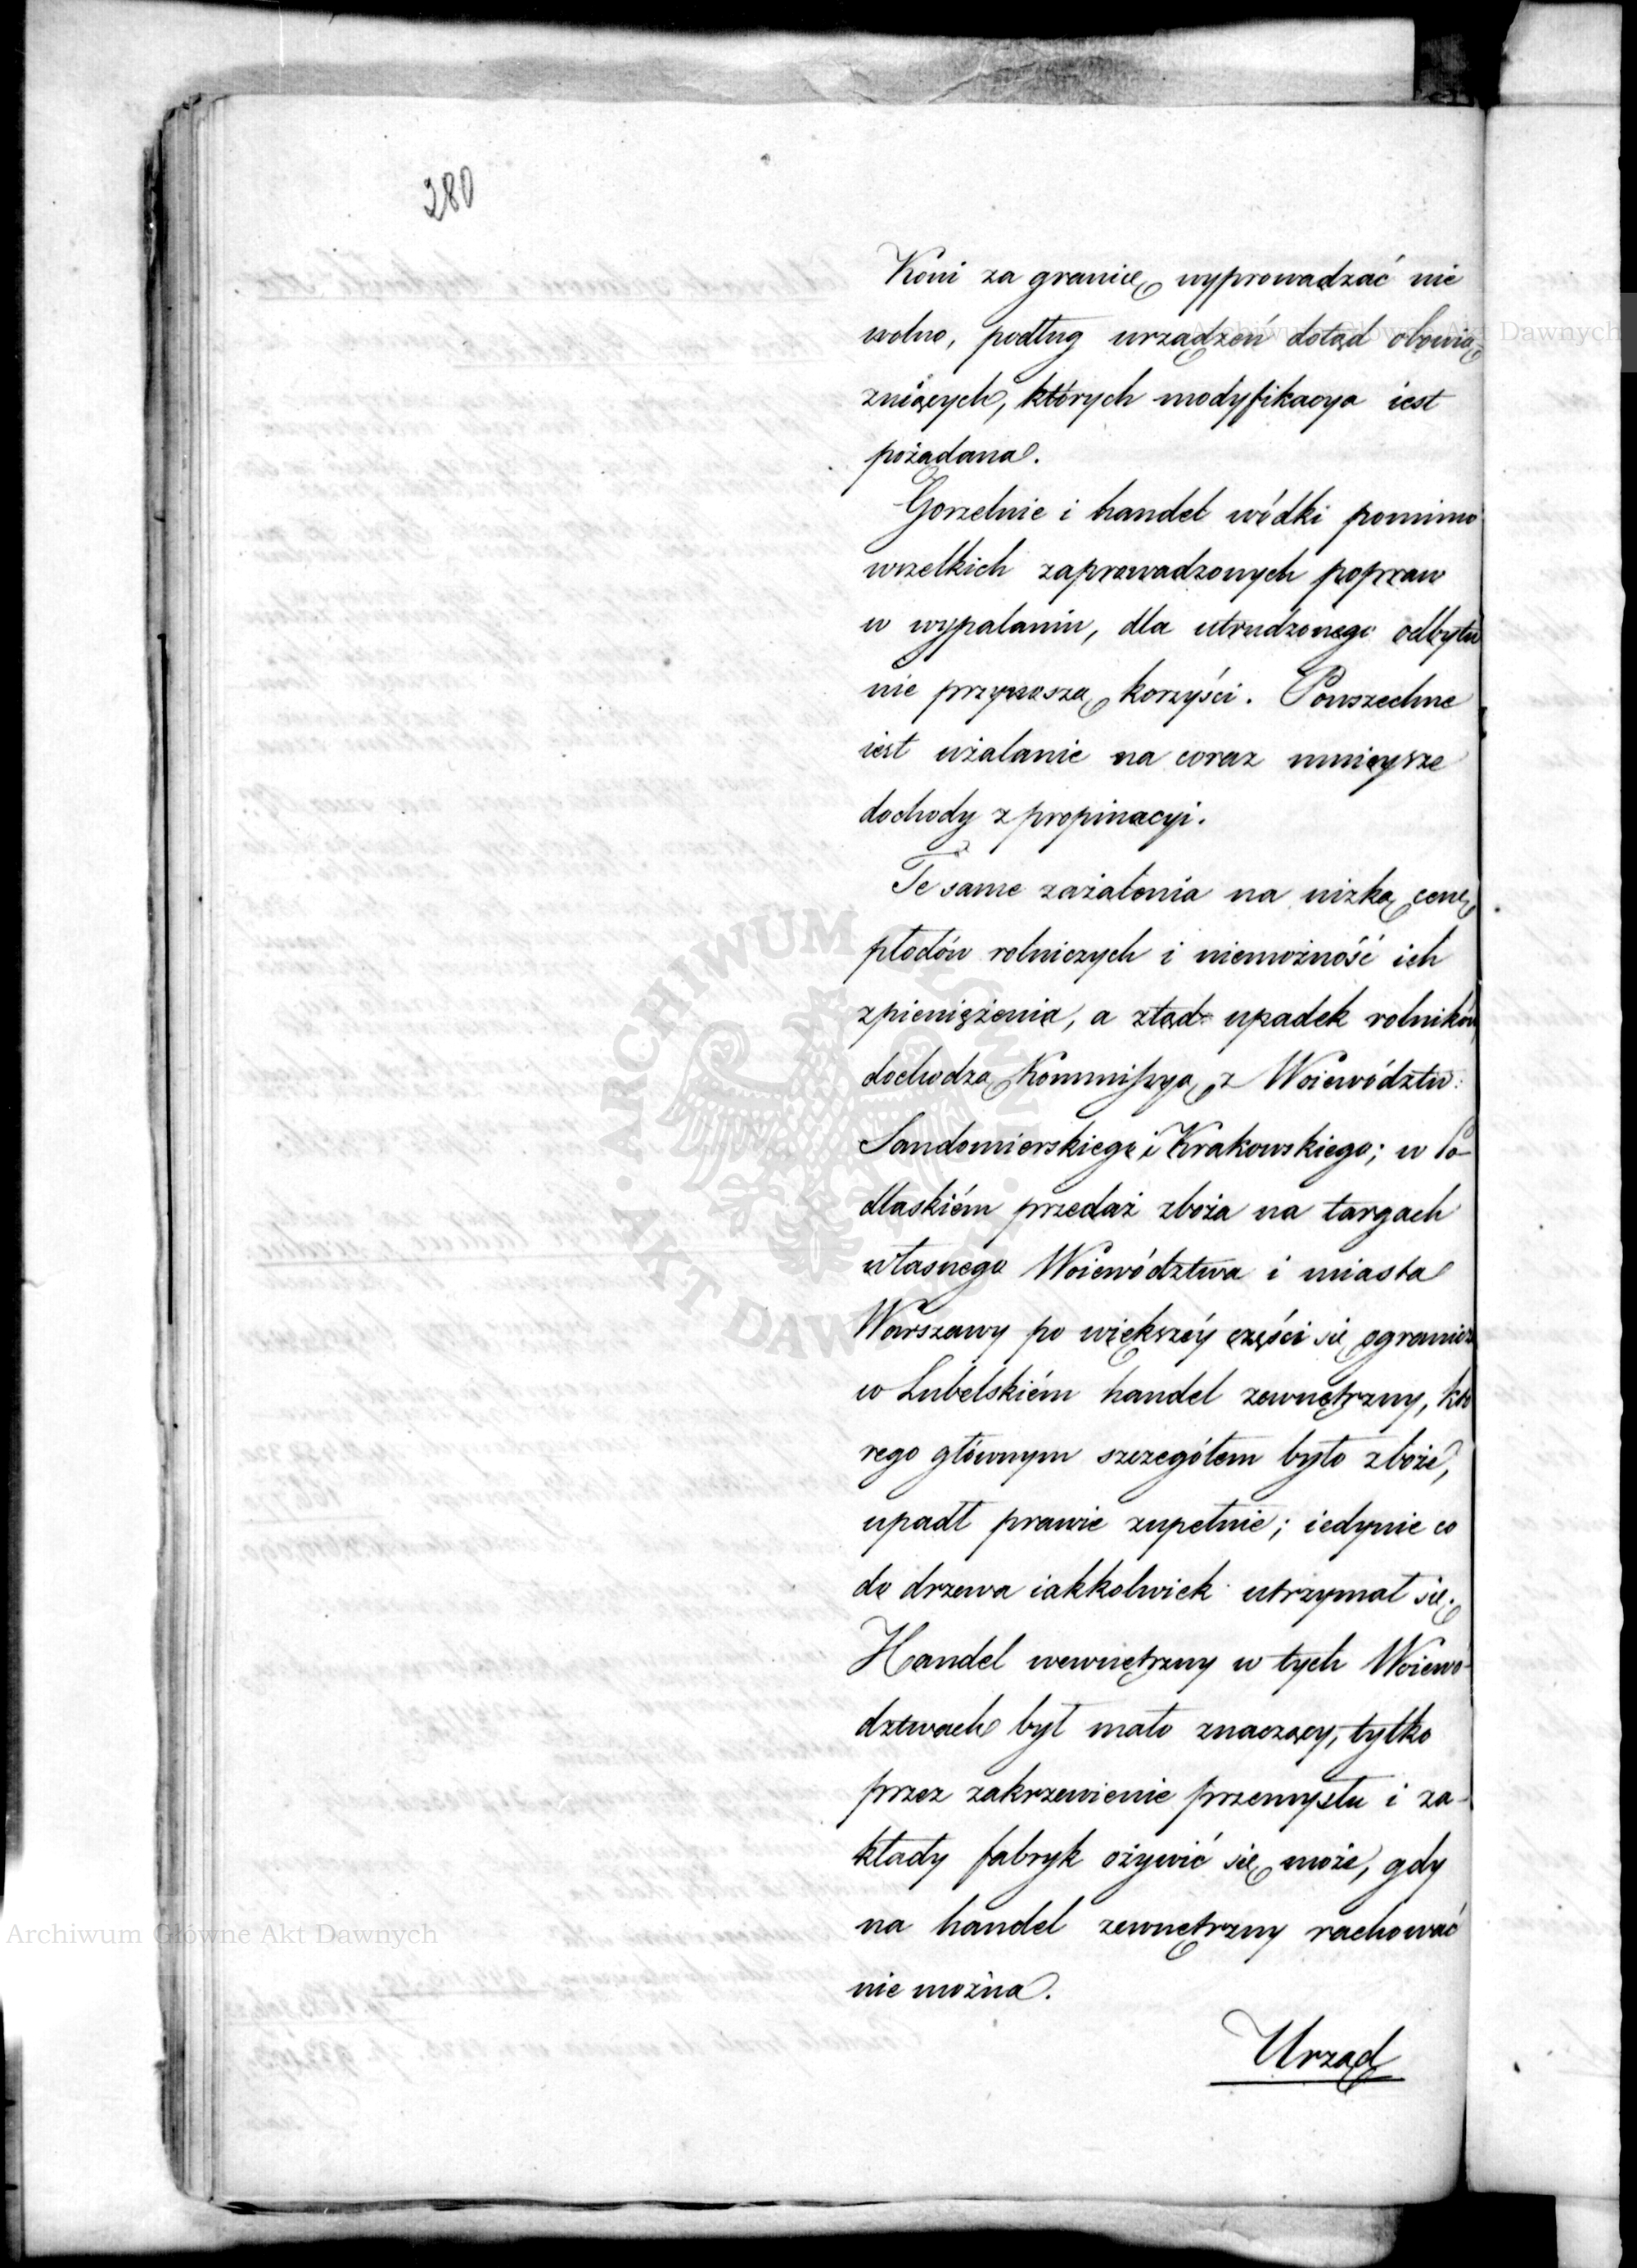 280
Koni za granicę wyprowadzać nie
wolno, podług urządzeń dotąd obowią
zuiących, których modyfikacya iest
pożądana.
Gorzelnie i handel wódki pomimo
wszelkich zaprowadzonych popraw
w wypalaniu, dla utrudzonego odbytu
nie przynoszą korzyści. Powszechne
iest użalanie na coraz mnieysze
dochody z propinacyi.
Te same zażalenia na nizką cenę
płodów rolniczych i niemożność ich
zpieniężenia, a ztąd upadek rolników
dochodzą Kommissyą z Woiewództw:
Sandomierskiego i Krakowskiego; w Po-
dlaskiém przedaż zboża na targach
własnego Woiewództwa i miasta
Warszawy po większéy części się ogranicza
w Lubelskiém handel zewnętrzny, któ
rego głównym szczegółem było zboże,
upadł prawie zupełnie; iedynie co
do drzewa iakkolwiek utrzymał się.
Handel wewnętrzny w tych Woiewó-
dztwach był mało znaczący, tylko
przez zakrzewienie przemysłu i za-
kłady fabryk ożywić się może, gdy
na handel zewnętrzny rachować
nie można.
Urząd
Archiwum Główne Akt Dawnych
Archiwum Główne Akt Dawnych
ARCHIWUM GŁÓWNE AKT DAWNYCH